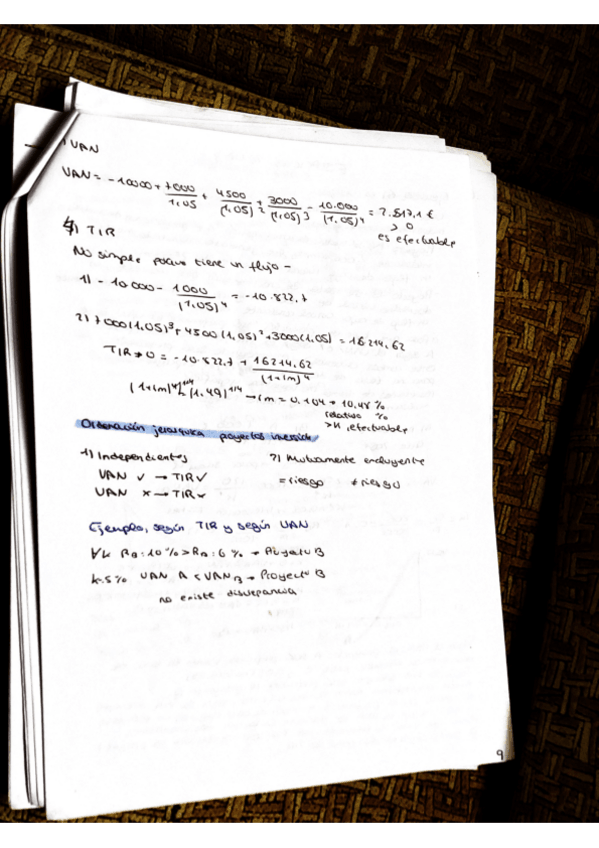 VAN
VAN = -10000 + 7000/1,05 + 4500/(1,05)2 + 3000/(1,05)3 - 10.000/(1,05)4 = 2.817,1 €
> 0
es efectuable
4) TIR
No simple porque tiene un flujo -
1) - 10 000 - 1000/(1,05)4 = -10.822,7
2) 7000(1,05)3 + 4500(1,05)2 + 3000(1,05) = 16214,62
TIR → 0 = -10.822,7 + 16214,62/(1+im)4
(1+im)4)1/4 = (1.49)1/4 → im = 0,104 → 10,48 %
relativo %
>k, efectuable
Ordenación jerarquica proyectos inversión
1) Independientes
VAN ✓ → TIR ✓
VAN × → TIR ×
2) Mutuamente excluyente
= riesgo ≠ riesgo
Ejemplo, según TIR y según VAN
∀k RB: 10% > RA: 6% → Proyecto B
k=5% VAN A < VAN B → Proyecto B
no existe discrepancia
9